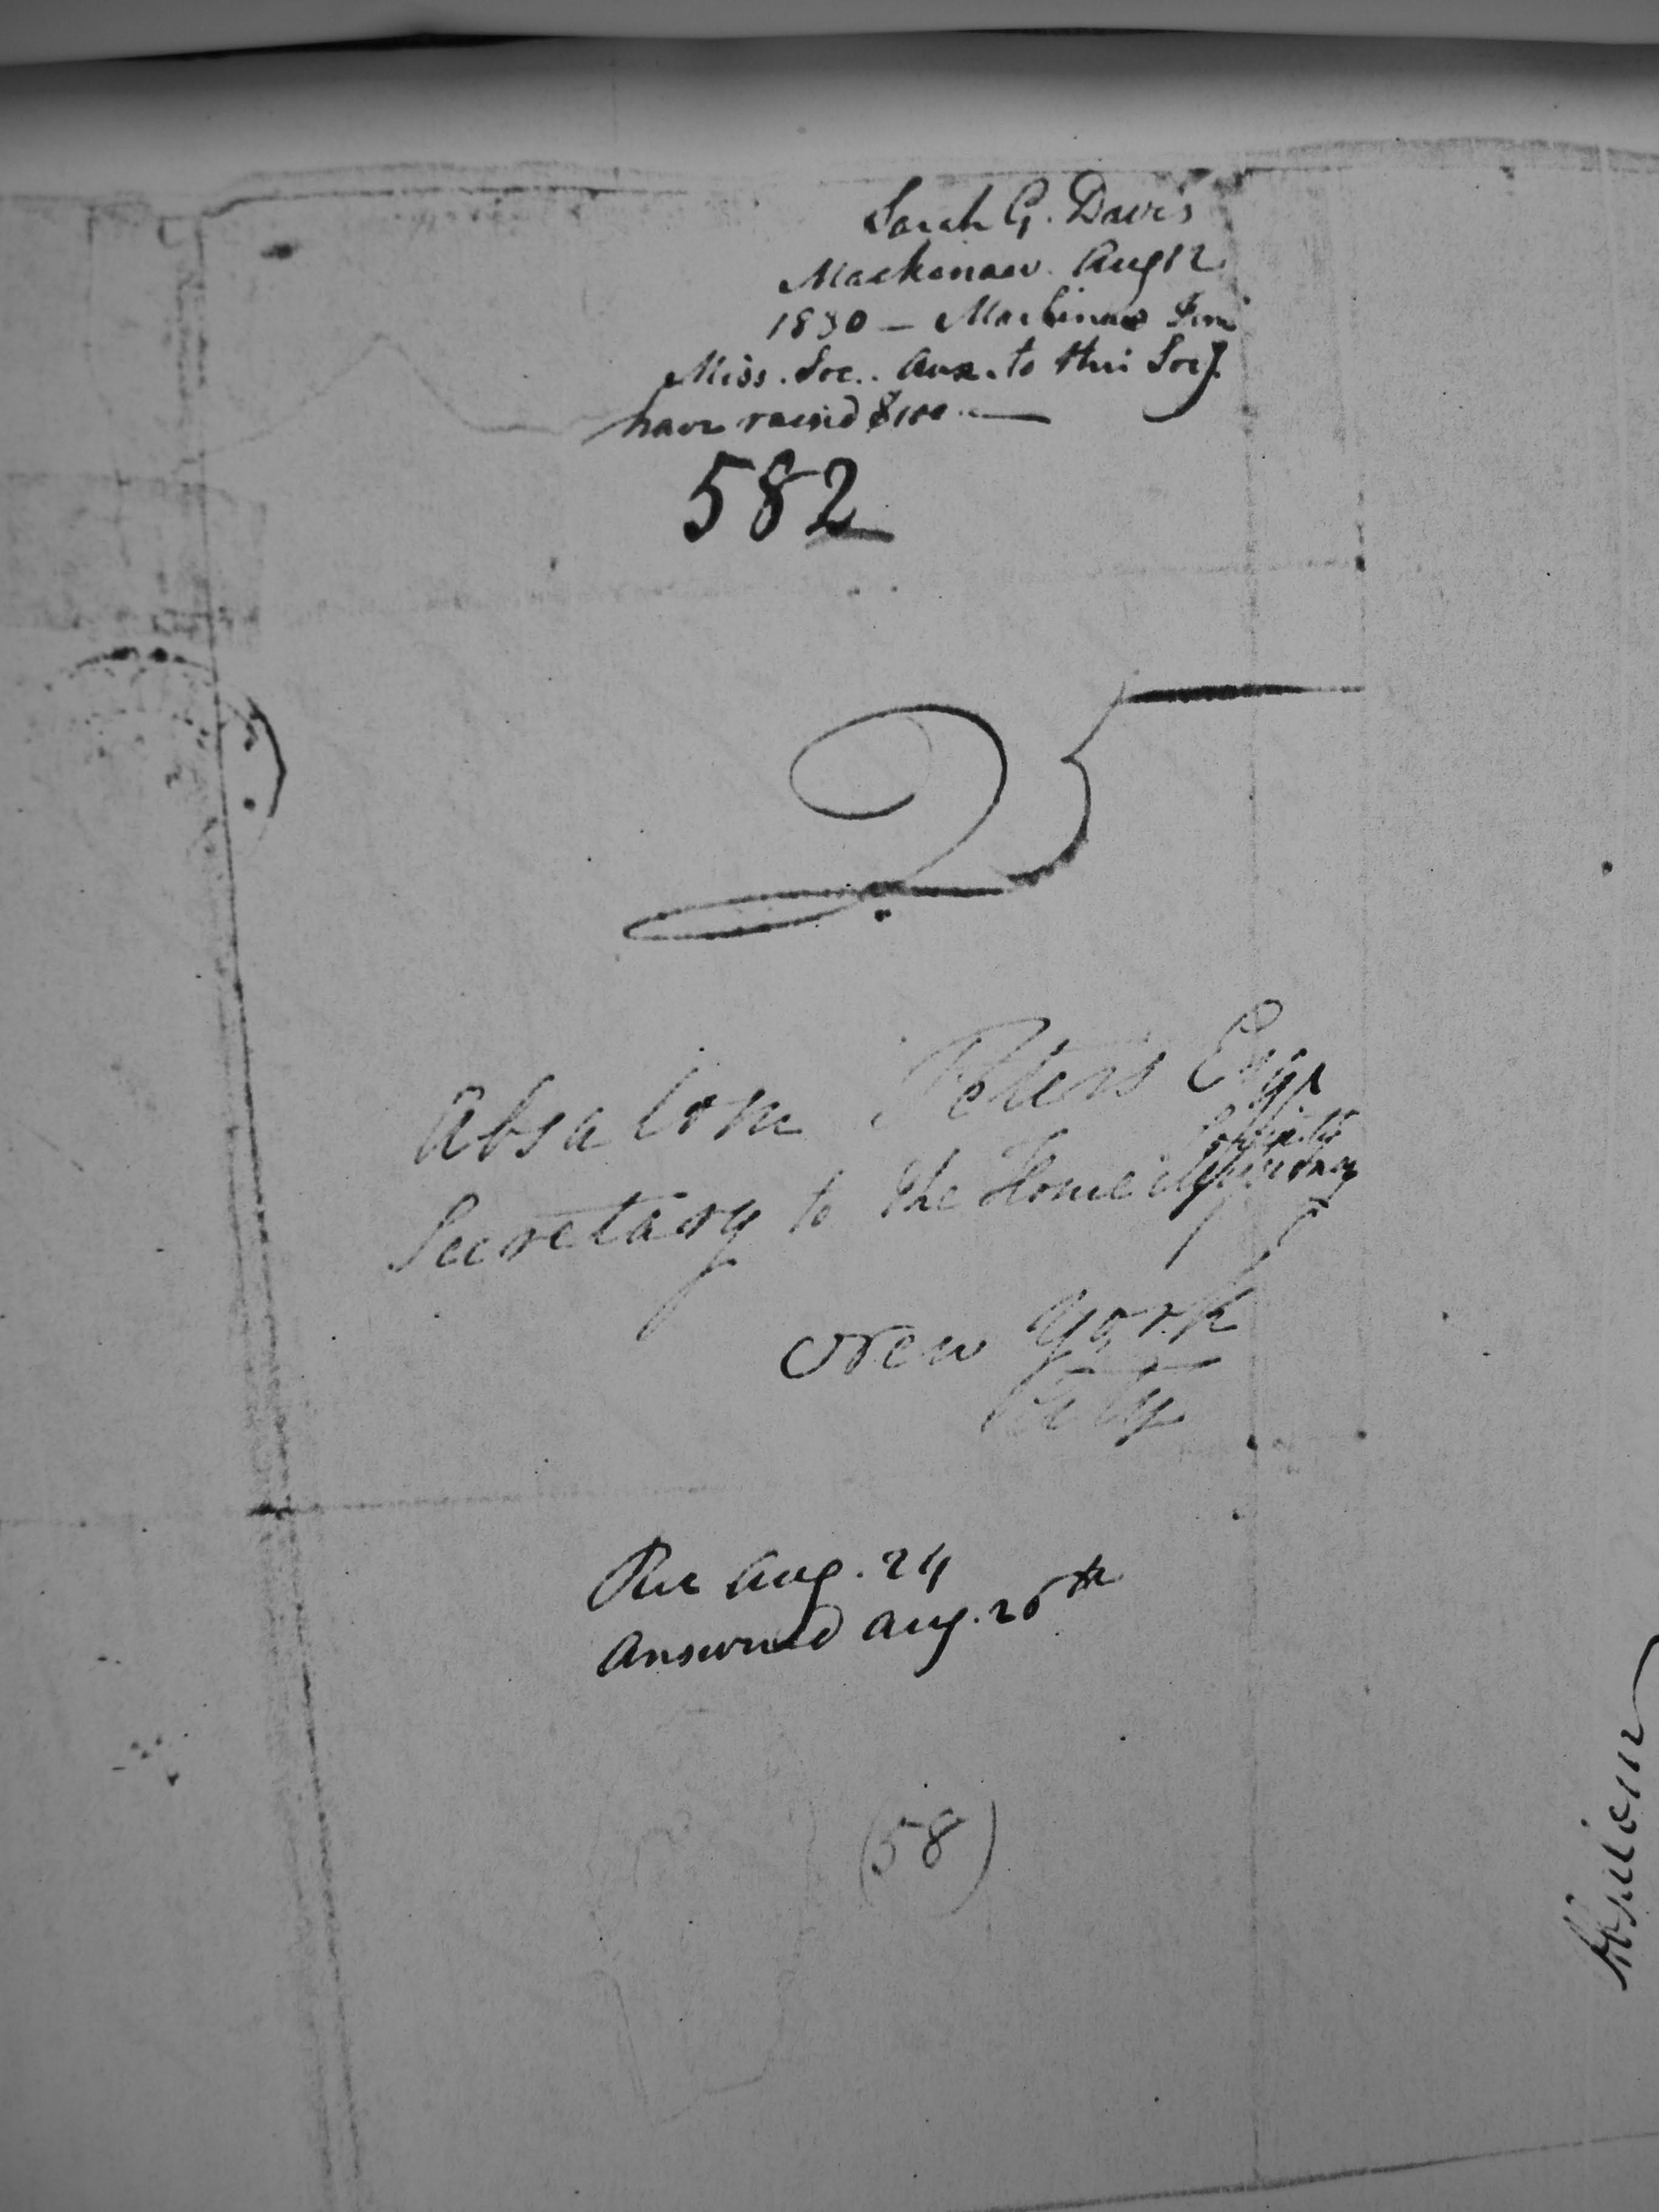 Sarah G. Davis
Mackinaw. Aug 12
1830 — Mackinaw Fem
Miss. Soc. Aux. to this Socy.
have raised $100. —
582
25
Absalom Peters Esqr
Secretary to the Home Missionary
Society
New York
City
Rec Aug. 24
Answered Aug. 26th
(58)